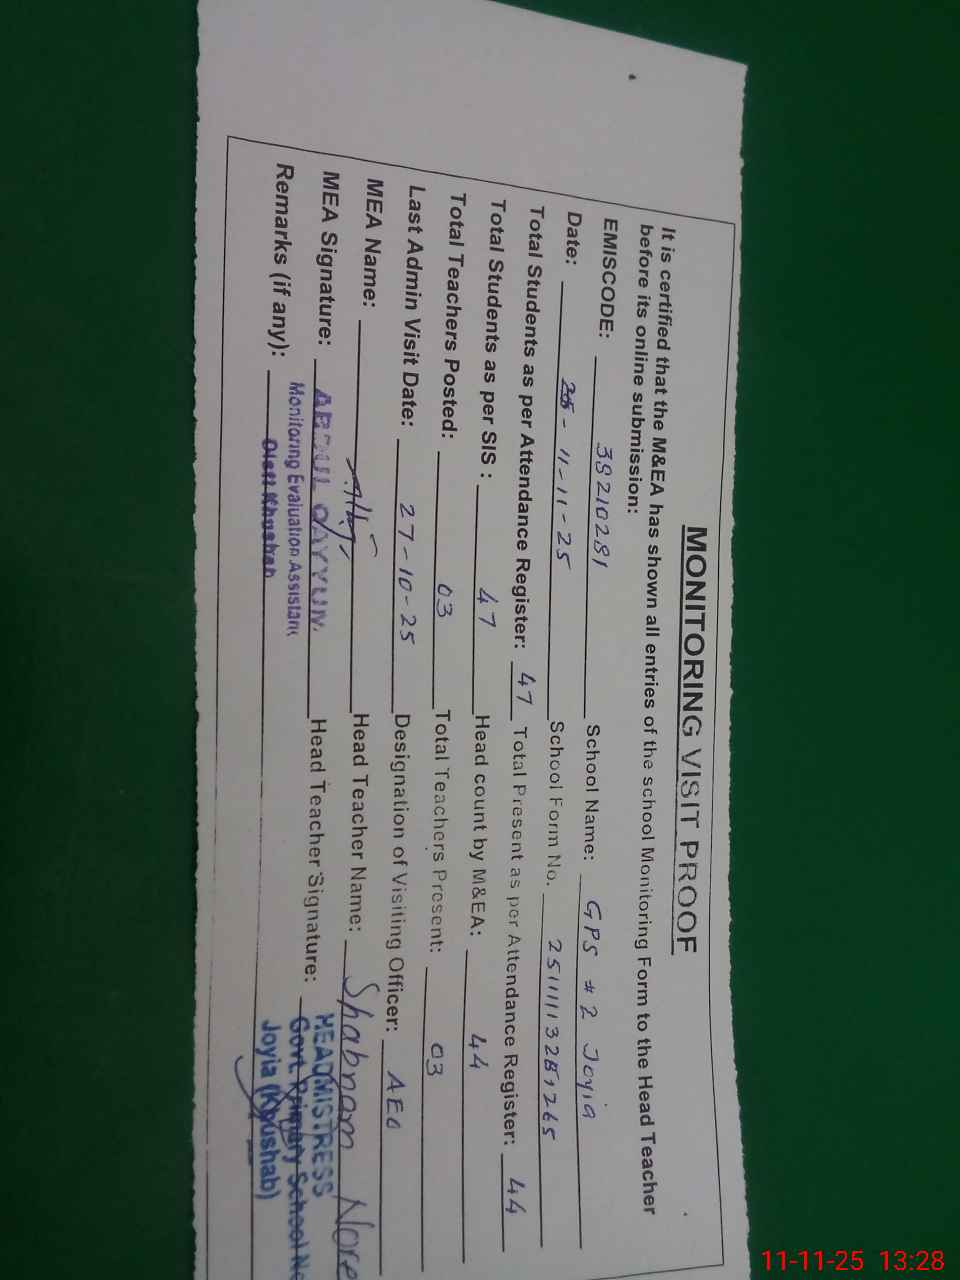 MONITORING VISIT PROOF
It is certified that the M&EA has shown all entries of the school Monitoring Form to the Head Teacher
before its online submission:
EMISCODE: 38210281 School Name: GPS # 2 Joyia
Date: 11-11-25 School Form No.
Total Students as per Attendance Register: 47 Total Present as per Attendance Register: 44
Total Students as per SIS : 47 Head count by M&EA: 44
Total Teachers Posted: 03 Total Teachers Present: 03
Last Admin Visit Date: 27-10-25 Designation of Visiting Officer: AEO
MEA Name: Head Teacher Name: Shabnam
MEA Signature: ABDUL QAYYUM Head Teacher Signature: HEADMISTRESS
Monitoring Evaluation Assistant Govt. Primary School
Remarks (if any): Distt Khushab Joyia (Khushab)
11-11-25 13:28